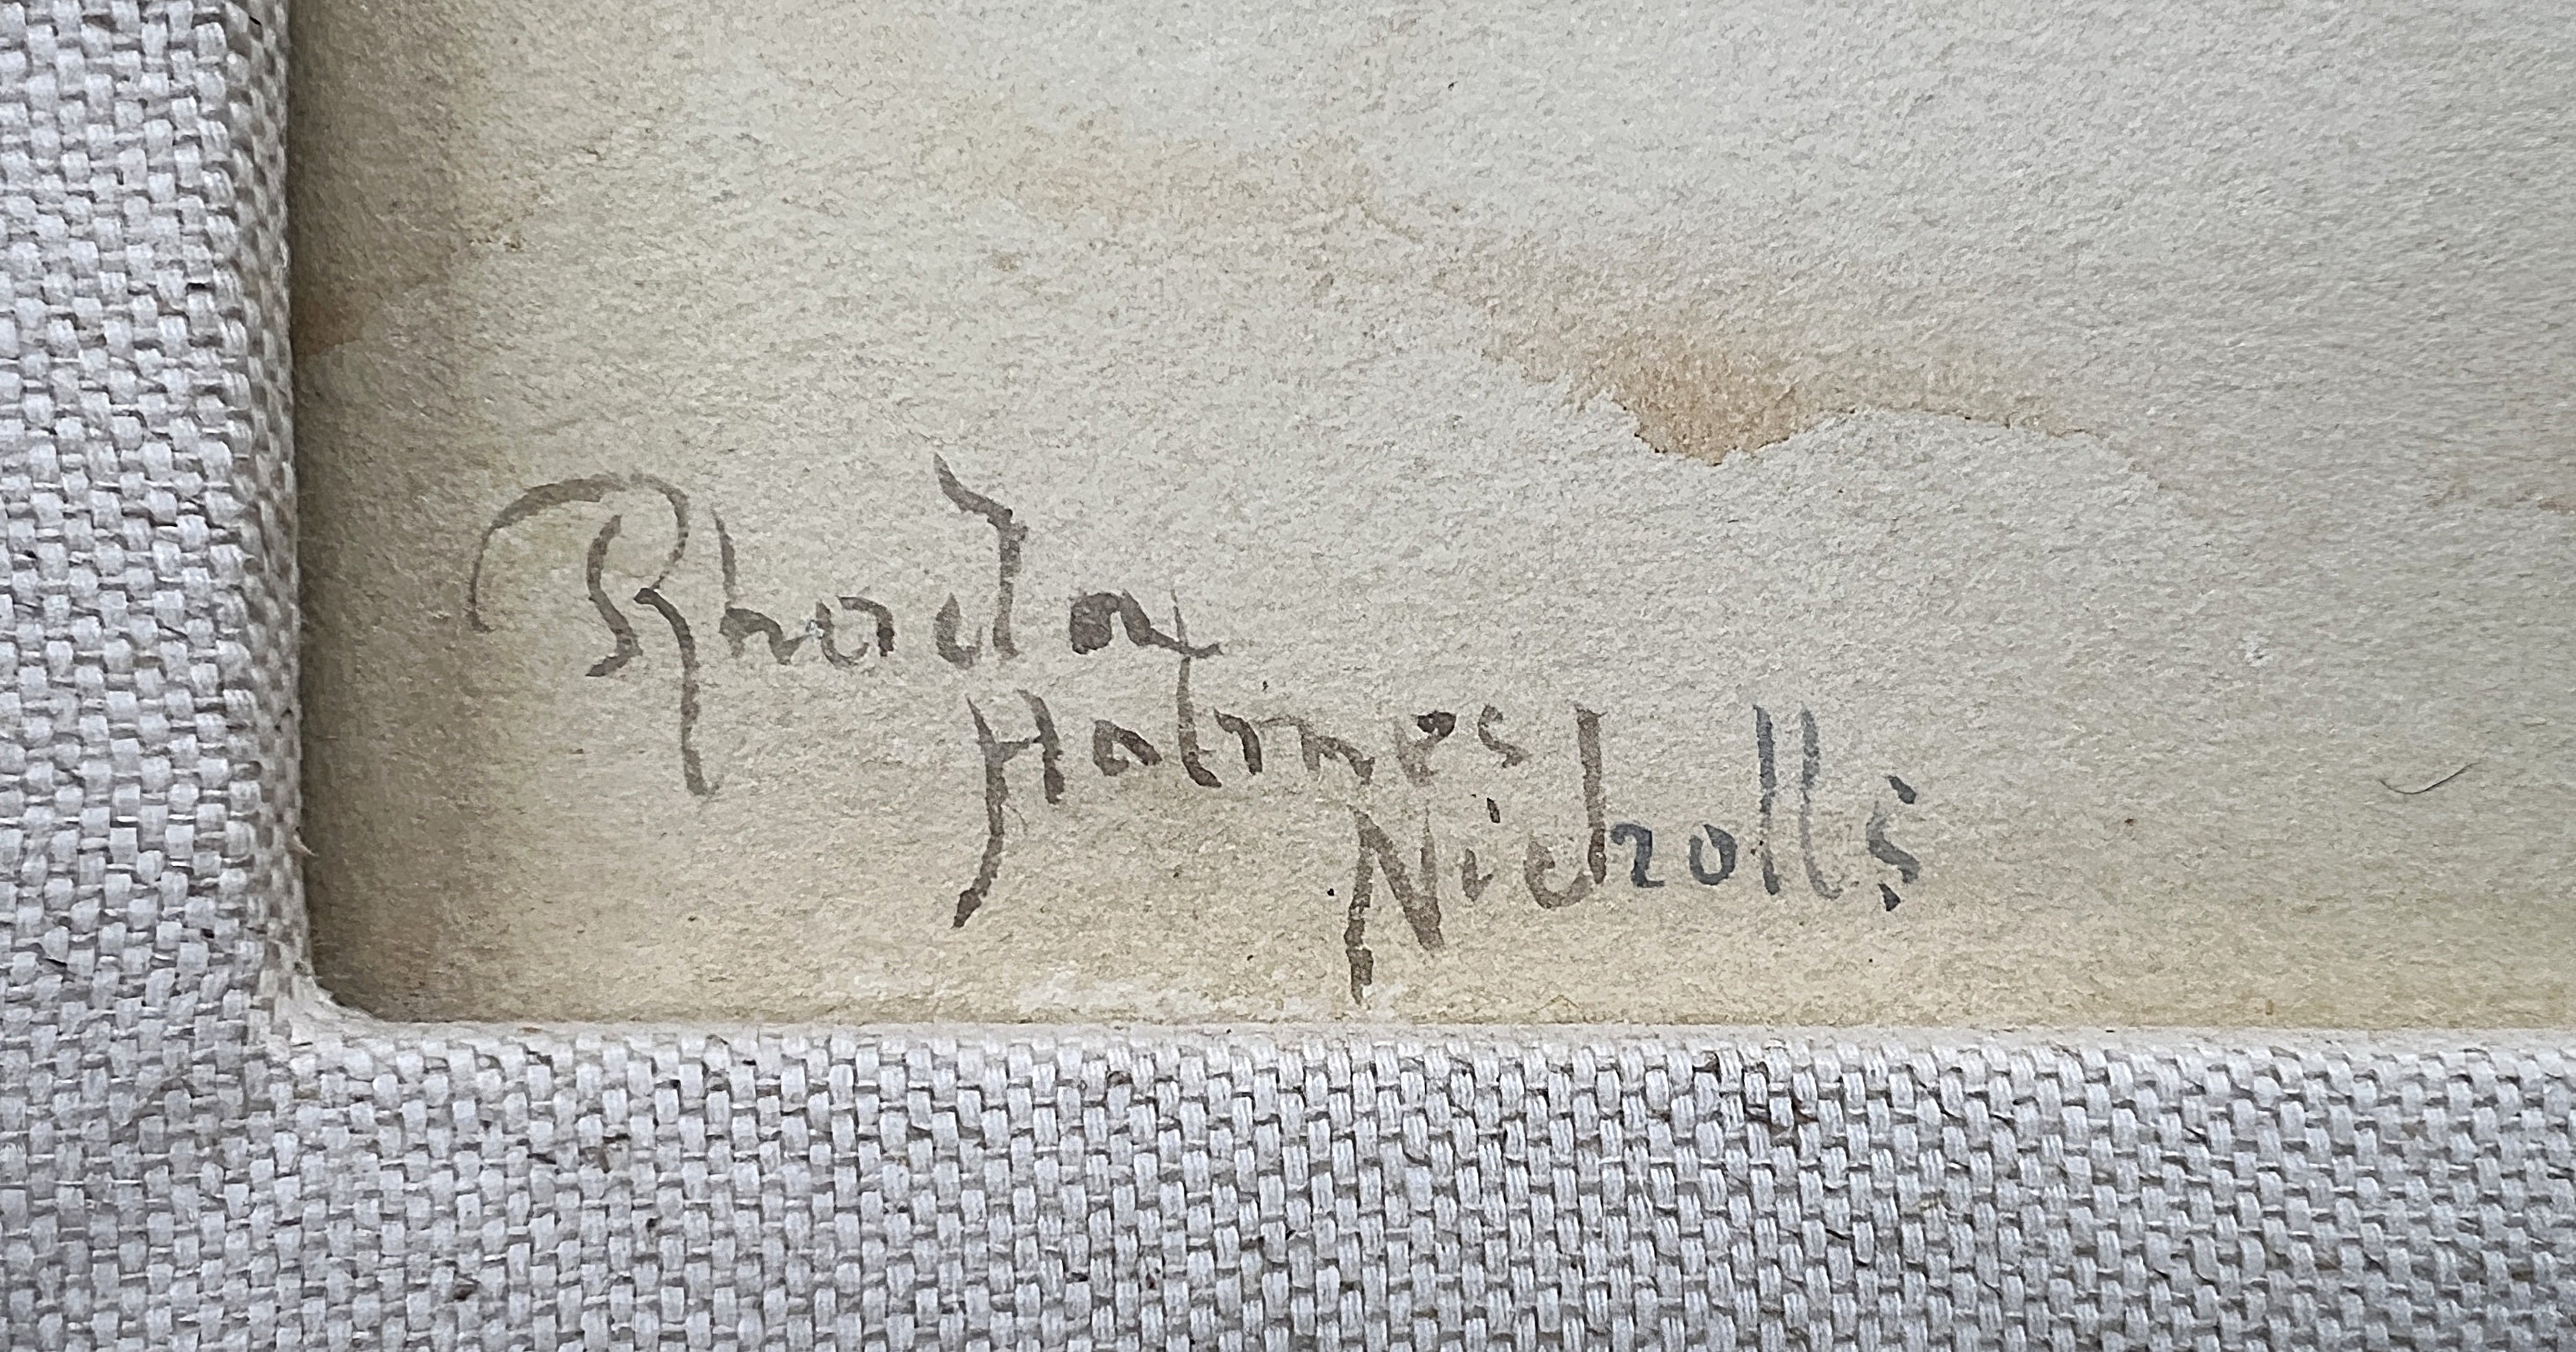 Rhoda
Holmes
Nicholls